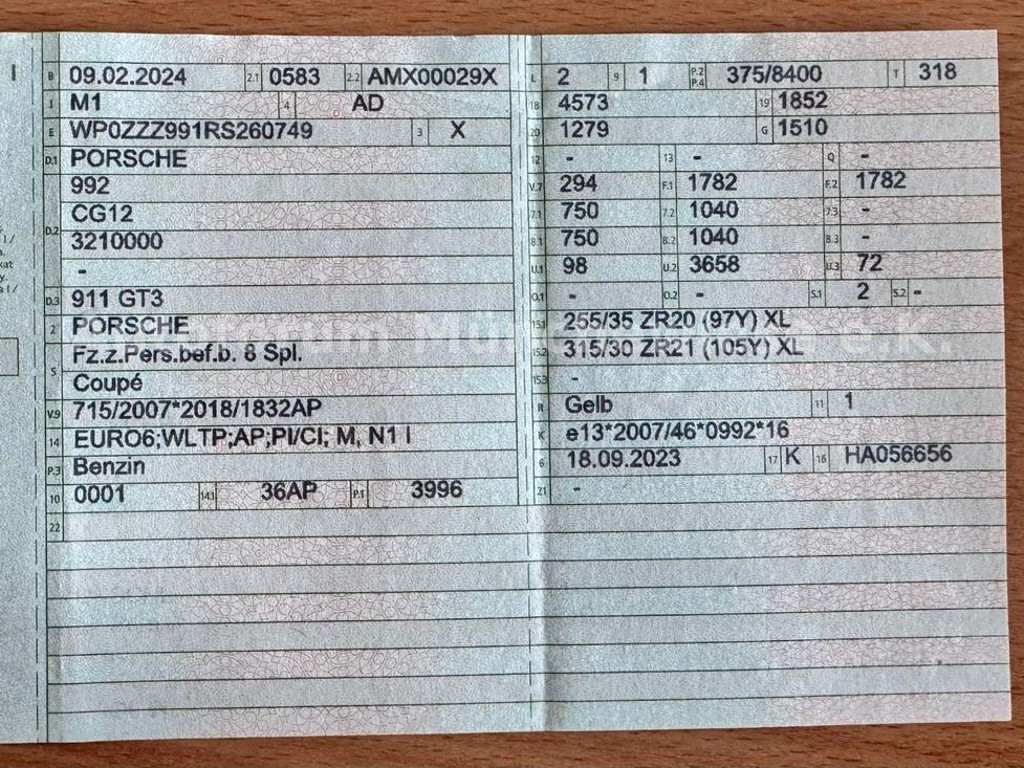 B 09.02.2024 2.1 0583 2.2 AMX00029X
J M1 4 AD
E WP0ZZZ991RS260749 3 X
D.1 PORSCHE
992
D.2 CG12
3210000
-
D.3 911 GT3
2 PORSCHE
5 Fz.z.Pers.bef.b. 8 Spl.
Coupé
V.9 715/2007*2018/1832AP
14 EURO6;WLTP;AP;PI/CI; M, N1 I
P.3 Benzin
10 0001 14.1 36AP P.1 3996
22
L 2 9 1 P.2 P.4 375/8400 T 318
18 4573 19 1852
20 1279 G 1510
12 - 13 - Q -
V.7 294 F.1 1782 F.2 1782
7.1 750 7.2 1040 7.3 -
8.1 750 8.2 1040 8.3 -
U.1 98 U.2 3658 U.3 72
O.1 - O.2 - S.1 2 S.2 -
15.1 255/35 ZR20 (97Y) XL
15.2 315/30 ZR21 (105Y) XL
15.3 -
R Gelb 11 1
K e13*2007/46*0992*16
6 18.09.2023 17 K 16 HA056656
21 -